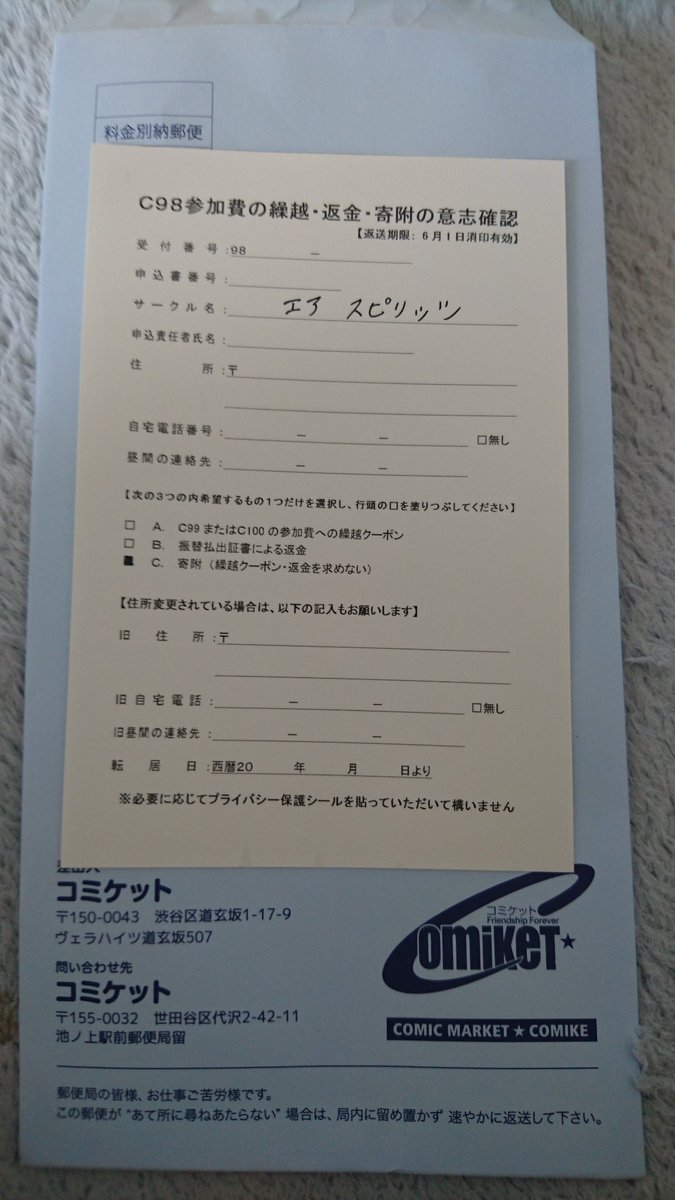 料金別納郵便
C98参加費の繰越・返金・寄附の意志確認
【返送期限：6月1日消印有効】
受付番号：98 －
申込書番号：
サークル名： エア スピリッツ
申込責任者氏名：
住所：〒
自宅電話番号： － － □無し
昼間の連絡先： － －
【次の3つの内希望するもの1つだけを選択し、行頭の口を塗りつぶしてください】
□ A. C99またはC100の参加費への繰越クーポン
□ B. 振替払出証書による返金
■ C. 寄附（繰越クーポン・返金を求めない）
【住所変更されている場合は、以下の記入もお願いします】
旧住所：〒
旧自宅電話： － － □無し
旧昼間の連絡先： － －
転居日：西暦20 年 月 日より
※必要に応じてプライバシー保護シールを貼っていただいて構いません
コミケット
〒150-0043 渋谷区道玄坂1-17-9
ヴェラハイツ道玄坂507
問い合わせ先
コミケット
〒155-0032 世田谷区代沢2-42-11
池ノ上駅前郵便局留
コミケット
Friendship Forever
ComiKeT★
COMIC MARKET ★ COMIKE
郵便局の皆様、お仕事ご苦労様です。
この郵便が“あて所に尋ねあたらない”場合は、局内に留め置かず 速やかに返送して下さい。